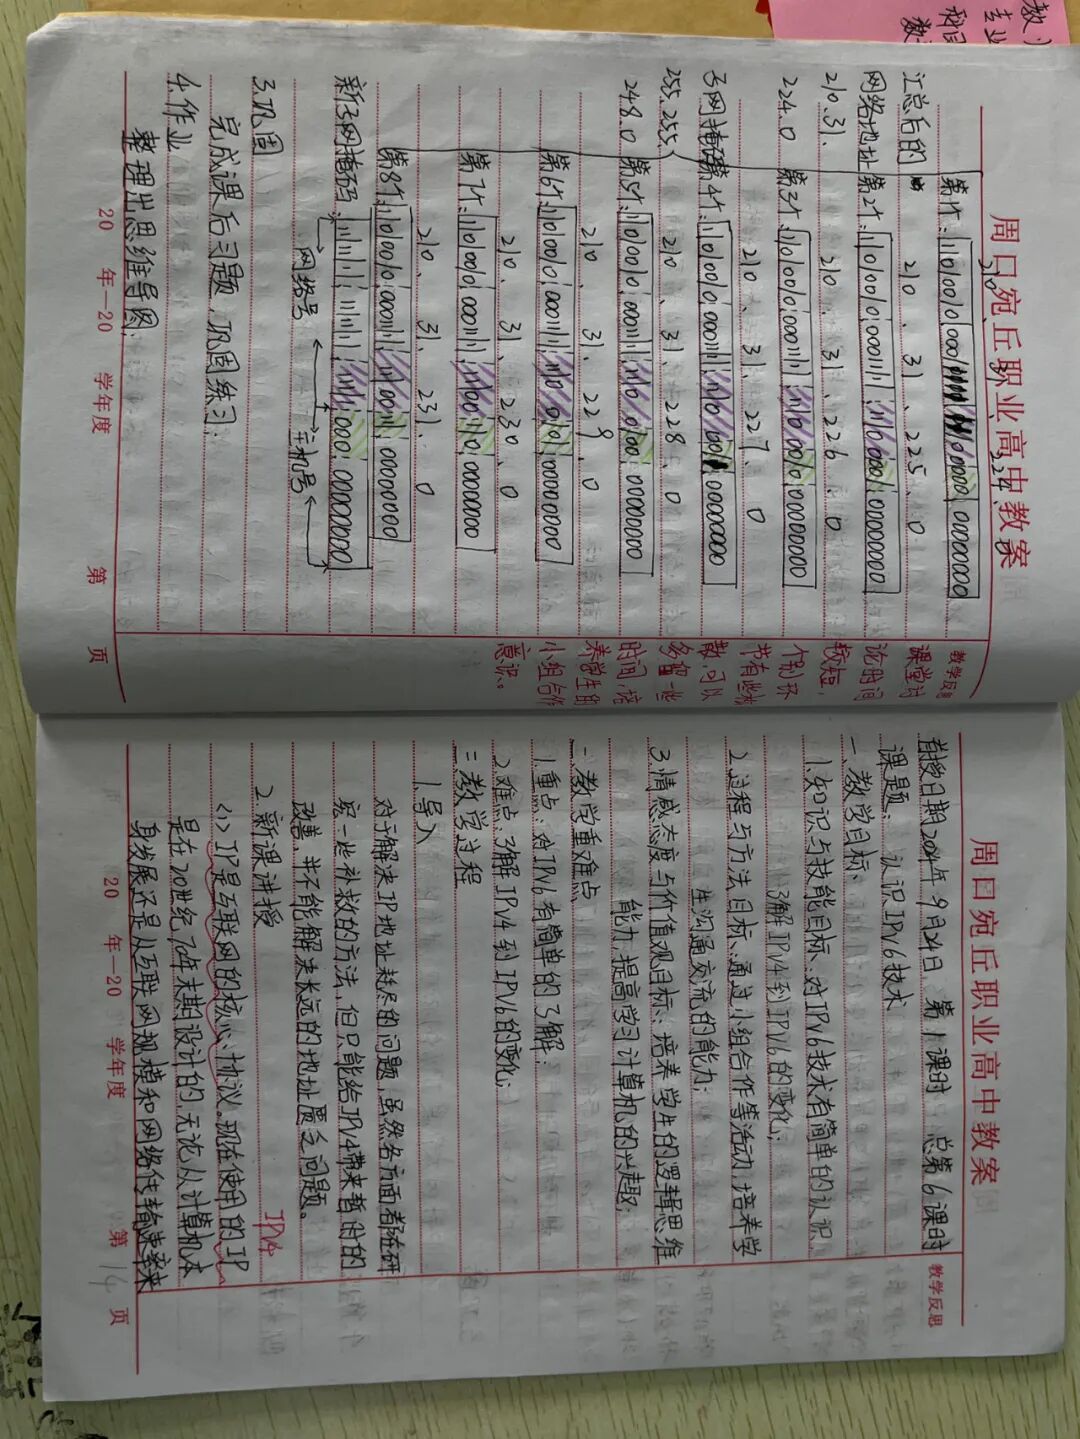 周口宛丘职业高中教案
教学反思
210 . 31 . 224 . 0
第1个:
00000000
汇总后的
210 . 31 . 225 . 0
网络地址
第2个: 11010010 00011111 11100001 00000000
210.31.
210 . 31 . 226 . 0
224.0
第3个: 11010010 00011111 11100010 00000000
210 . 31 . 227 . 0
子网掩码
第4个: 11010010 00011111
00000000
255.255.
210 . 31 . 228 . 0
248.0
第5个: 11010010 00011111 11100100 00000000
210 . 31 . 229 . 0
第6个: 11010010 00011111 11100101 00000000
210 . 31 . 230 . 0
第7个: 11010010 00011111 11100110 00000000
210 . 31 . 231 . 0
第8个: 11010010 00011111 11100111 00000000
新子网掩码: 11111111 11111111 11111000 00000000
网络号 主机号
3.巩固
完成课后习题,巩固练习.
4.作业
整理出思维导图.
课堂讨
论时间
较短,
个别环
节有些
散,可以
多留一些
时间,培
养学生的
小组合作
意识。
20 年—20 学年度 第 页
周口宛丘职业高中教案
教学反思
授日期2024年9月24日 第1课时 总第6课时
课题: 认识IPv6技术
一、教学目标:
1.知识与技能目标:对IPv6技术有简单的认识
了解IPv4到IPv6的变化;
2.过程与方法目标:通过小组合作等活动,培养学
生沟通交流的能力;
3.情感态度与价值观目标:培养学生的逻辑思维
能力,提高学习计算机的兴趣;
教学重难点
1.重点:对IPv6有简单的了解;
2.难点:了解IPv4到IPv6的变化;
三教学过程
1.导入
对于解决IP地址耗尽的问题,虽然各方面都在研
究一些补救的方法,但只能给IPv4带来暂时的
改善,并不能解决长远的地址匮乏问题。
2.新课讲授
IPv4
<1>IP是互联网的核心协议,现在使用的IP
是在20世纪70年末期设计的,无论从计算机本
身发展还是从互联网规模和网络传输速率来
20 年—20 学年度 第14页
教
专业
科目